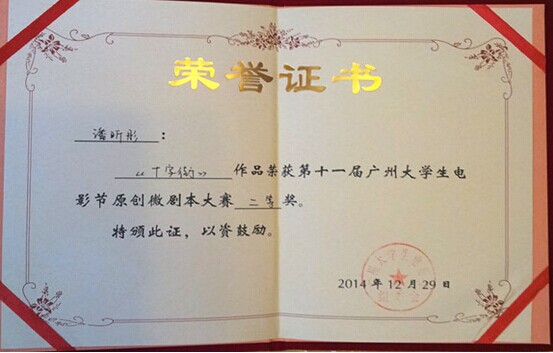 荣誉证书
潘昕彤：
《十字街》作品荣获第十一届广州大学生电
影节原创微剧本大赛二等奖。
特颁此证，以资鼓励。
2014年12月29日